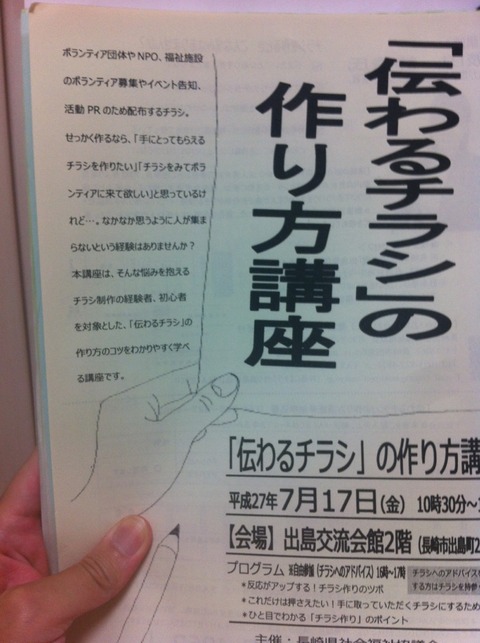 「伝わるチラシ」の
作り方講座
ボランティア団体や NPO、福祉施設
のボランティア募集やイベント告知、
活動 PR のため配布するチラシ。
せっかく作るなら、「手にとってもらえる
チラシを作りたい」「チラシをみてボラ
ンティアに来て欲しい」と思っているけ
れど…。なかなか思うように人が集ま
らないという経験はありませんか？
本講座は、そんな悩みを抱える
チラシ制作の経験者、初心者
を対象とした、「伝わるチラシ」の
作り方のコツをわかりやすく学べ
る講座です。
「伝わるチラシ」の作り方講
平成27年7月17日(金) 10時30分～
【会場】出島交流会館2階 (長崎市出島町2
プログラム ※自由参加(チラシへのアドバイス)16時～17時
チラシへのアドバイス
する方はチラシを持参
*反応がアップする！チラシ作りのツボ
*これだけは押さえたい！手に取っていただくチラシにするため
*ひと目でわかる「チラシ作り」のポイント
主催：長崎県社会福祉協議会